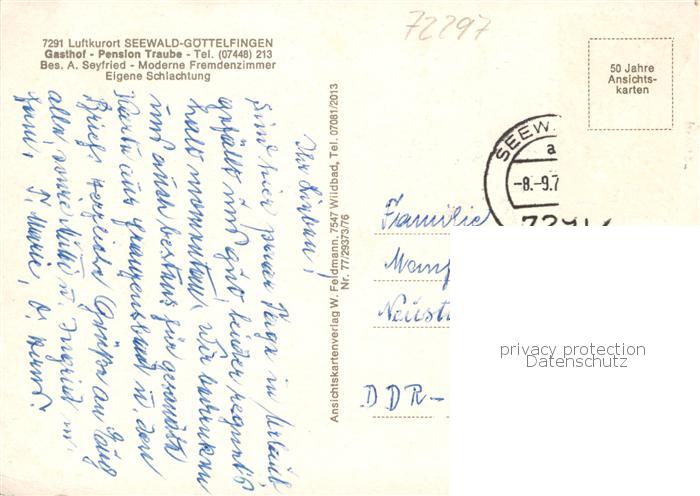 72297
7291 Luftkurort SEEWALD-GÖTTELFINGEN
Gasthof - Pension Traube - Tel. (07448) 213
Bes. A. Seyfried - Moderne Fremdenzimmer
Eigene Schlachtung
50 Jahre
Ansichts-
karten
SEEW
a
-8.-9.7
Ansichtskartenverlag W. Feldmann, 7547 Wildbad, Tel. 07081/2013
Nr. 77/29373/76
Ihr Lieben!
Sind hier paar Tage in Urlaub
gefällt uns gut, leider regnet's
halt momentan. Wir
uns auch bestens für gesandte
Karte aus u. den
Brief. Herzliche Grüße an Euch
alle, sowie u. Ingrid u.
Fam. T. Marie, O.
Familie
Neust
DDR-
privacy protection
Datenschutz